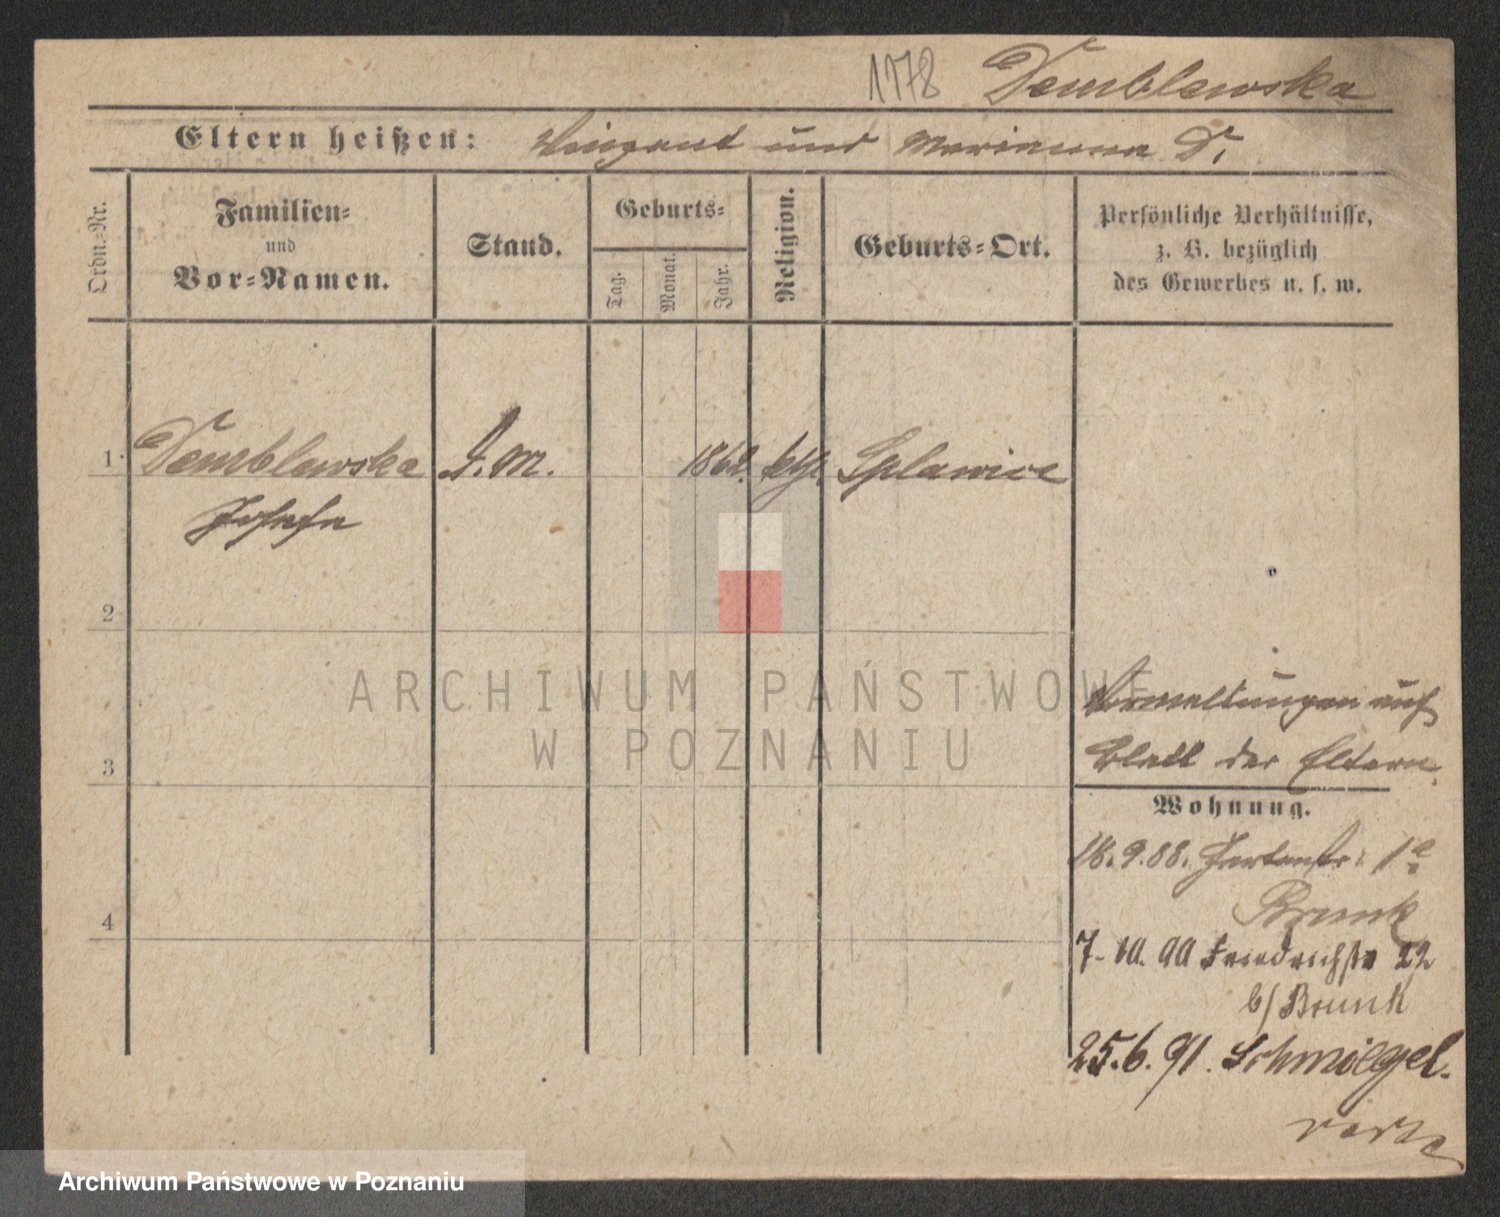 1178 Demblewska
Eltern heißen: Vinzent und Marianna D.
Ordn.-Nr.
Familien-
und
Vor-Namen.
Stand.
Geburts-
Tag.
Monat.
Jahr.
Religion.
Geburts-Ort.
Persönliche Verhältnisse,
z. B. bezüglich
des Gewerbes u. s. w.
1 Demblewska D. M. kth. Splawice
Josefa
2
ARCHIWUM PAŃSTWOWE
W POZNANIU
auf
Blatt der Eltern.
3
Wohnung.
18.9.88. Gartenstr. 1
Brunk
4
7.10.90 Friedrichstr 22
b/ Brunk
25.6.91. Schmiegel.
verte
Archiwum Państwowe w Poznaniu